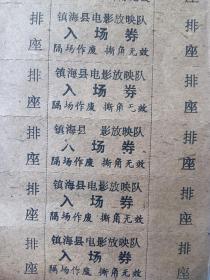 排
座
镇海县电影放映队
入场券
隔场作废 撕角无效
排
座
镇海县电影放映队
入场券
隔场作废 撕角无效
排
座
镇海县 影放映队
入场券
隔场作废 撕角无效
排
座
镇海县电影放映队
入场券
隔场作废 撕角无效
排
座
镇海县电影放映队
入场券
隔场作废 撕角无效
排
座
排
座
排
座
排
座
排
座